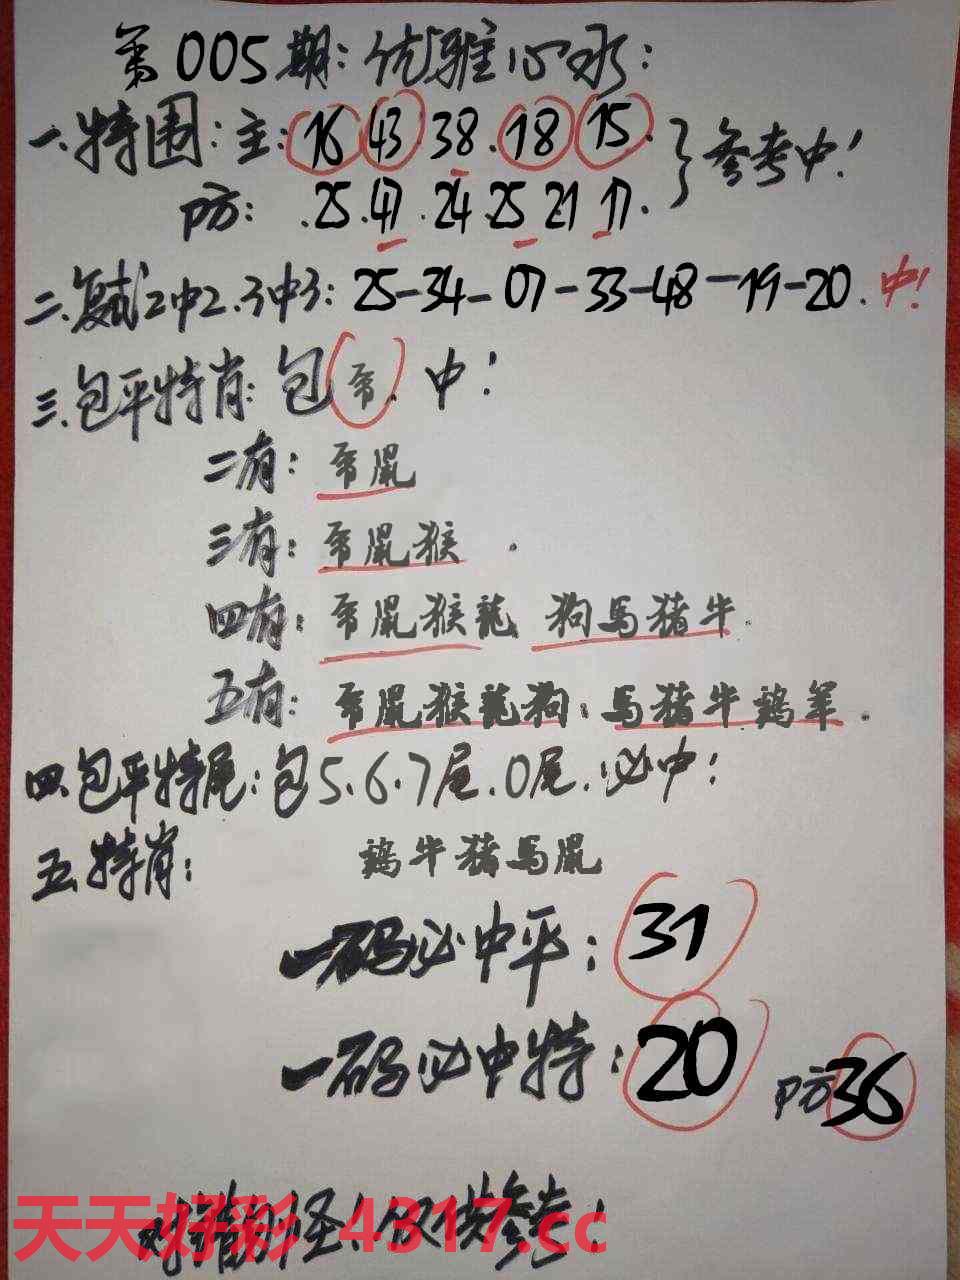 第005期:优雅心水:
一.特围:主:16.43.38.18.15.
防:.25.47.24.25 21 17.
参考中!
二.复式2中2.3中3:25-34-07-33-48-19-20.中!
三.包平特肖:包.中!
二有:鼠
三有:鼠猴.
四有:鼠猴龍 狗馬豬牛.
五有:鼠猴龍狗.馬豬牛鷄羊.
四.包平特尾:包5.6.7尾.0尾.必中!
五.特肖:鷄牛豬馬鼠
一码必中平:31
一码必中特:20 防36
对错勿怪!仅供参考!
天天好彩 4317.cc